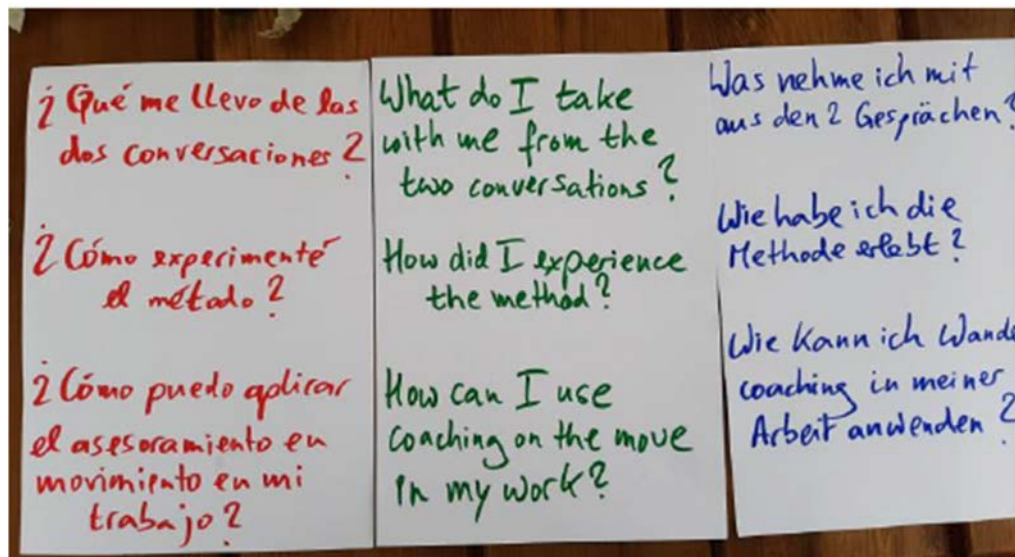 ¿Qué me llevo de las
dos conversaciones?
¿Cómo experimenté
el método?
¿Cómo puedo aplicar
el asesoramiento en
movimiento en mi
trabajo?
What do I take
with me from the
two conversations?
How did I experience
the method?
How can I use
coaching on the move
in my work?
Was nehme ich mit
aus den 2 Gesprächen?
Wie habe ich die
Methode erlebt?
Wie kann ich Wande
coaching in meiner
Arbeit anwenden?